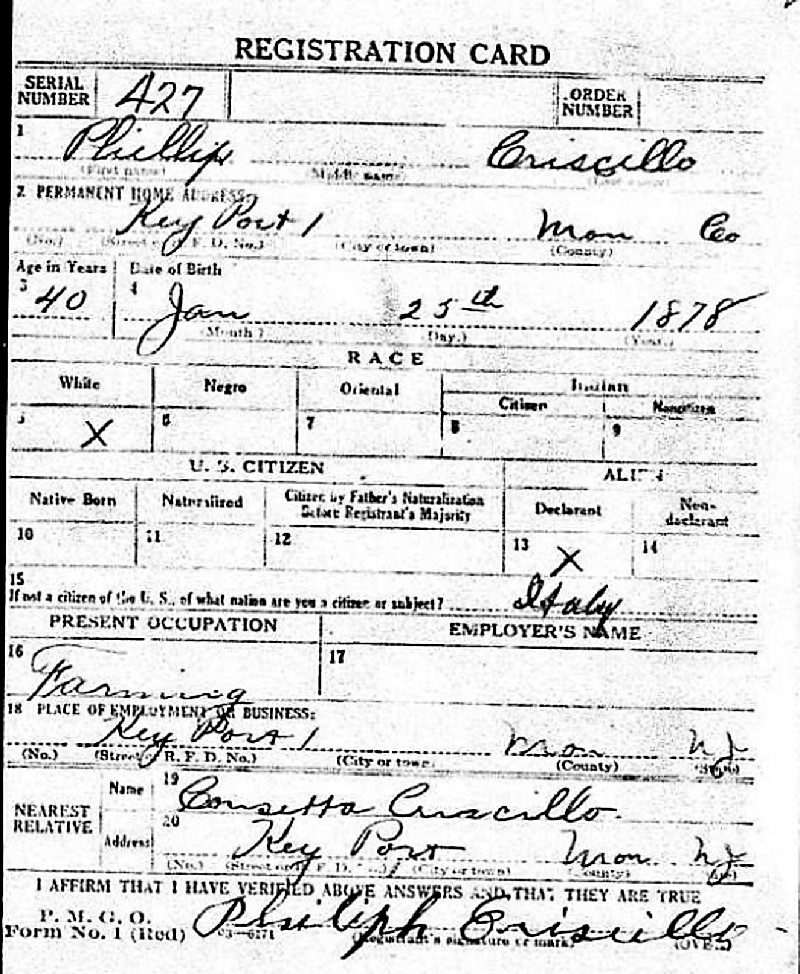 REGISTRATION CARD
SERIAL NUMBER 427 ORDER NUMBER
1 Phillip Criscillo
(First name) (Middle name) (Last name)
2 PERMANENT HOME ADDRESS:
Key Port 1 Mon Co
(No.) (Street or R. F. D. No.) (City or town) (County)
Age in Years Date of Birth
3 40 4 Jan 25th 1878
(Month) (Day.) (Year.)
RACE
White Negro Oriental Indian
Citizen Noncitizen
5 X 6 7 8 9
U. S. CITIZEN ALIEN
Native Born Naturalized Citizen by Father's Naturalization Before Registrant's Majority Declarant Non-declarant
10 11 12 13 X 14
15
If not a citizen of the U. S., of what nation are you a citizen or subject? Italy
PRESENT OCCUPATION EMPLOYER'S NAME
16 Farming 17
18 PLACE OF EMPLOYMENT OR BUSINESS:
Key Port 1 Mon N J
(No.) (Street or R. F. D. No.) (City or town) (County) (State)
NEAREST RELATIVE Name 19 Consetta Criscillo
Address 20 Key Port Mon N J
(No.) (Street or R. F. D. No.) (City or town) (County) (State)
I AFFIRM THAT I HAVE VERIFIED ABOVE ANSWERS AND THAT THEY ARE TRUE
P. M. G. O.
Form No. 1 (Red) 03-6171 Philiph Criscillo
(Registrant's signature or mark) (OVER)